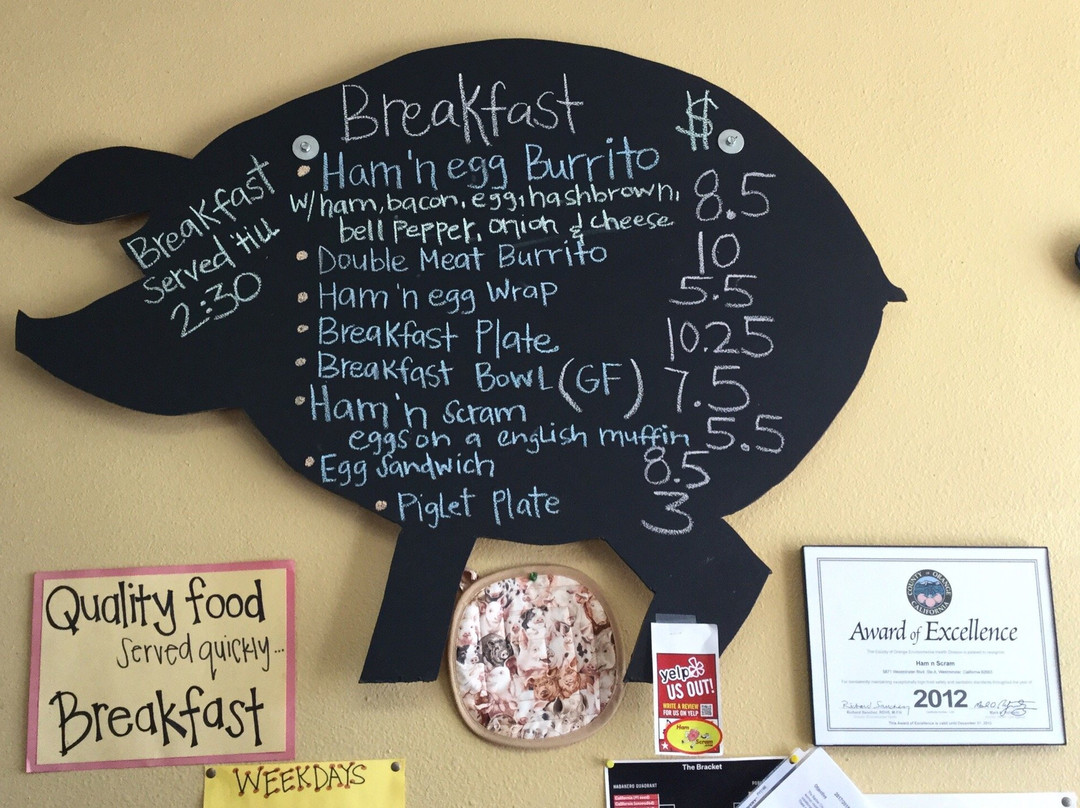 Breakfast $
Ham 'n egg Burrito 8.5
w/ham, bacon, egg, hashbrown,
bell pepper, onion & cheese
Double Meat Burrito 10
Ham 'n egg Wrap 5.5
Breakfast Plate 10.25
Breakfast Bowl (GF) 7.5
Ham 'n Scram
eggs on a english muffin 5.5
Egg Sandwich 8.5
Piglet Plate 3
Breakfast
Served 'till
2:30
Quality food
Served quickly...
Breakfast
WEEKDAYS
yelp
US OUT!
WRITE A REVIEW
FOR US ON YELP
Ham
Scram
COUNTY OF ORANGE
CALIFORNIA
Award of Excellence
Ham n Scram
2012
The Bracket
HABANERO QUADRANT